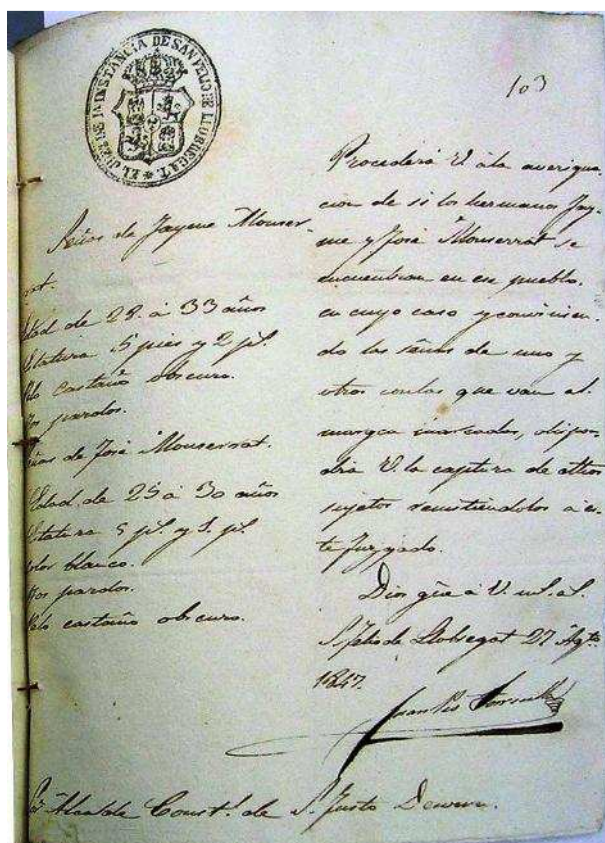 EL JUEZ DE 1ª INSTANCIA DE SAN FELIO DE LLOBREGAT.
103
Señas de Jayme Monser-
rat.
Edad de 28 á 33 años
Estatura 5 pies y 2 pul.
Pelo castaño obscuro.
Ojos pardos.
Señas de José Monserrat.
Edad de 25 á 30 años
Estatura 5 pˢ. y 1. pˡ.
Color blanco.
Ojos pardos.
Pelo castaño obscuro.
Procederá V. á la averigua
cion de si los hermanos Jay-
me y José Monserrat se
encuentran en ese pueblo.
en cuyo caso y convinien-
do las señas de uno y
otro con las que van al
margen marcadas, dispon-
drá V. la captura de dhos
sujetos remitiendolos á es-
te juzgado.
Dios gũe á V. m.ˢ a.ˢ
S. Felio de Llobregat 27 Agto
1847.
Sor Alcalde Const.ˡ de S. Justo Desvern.